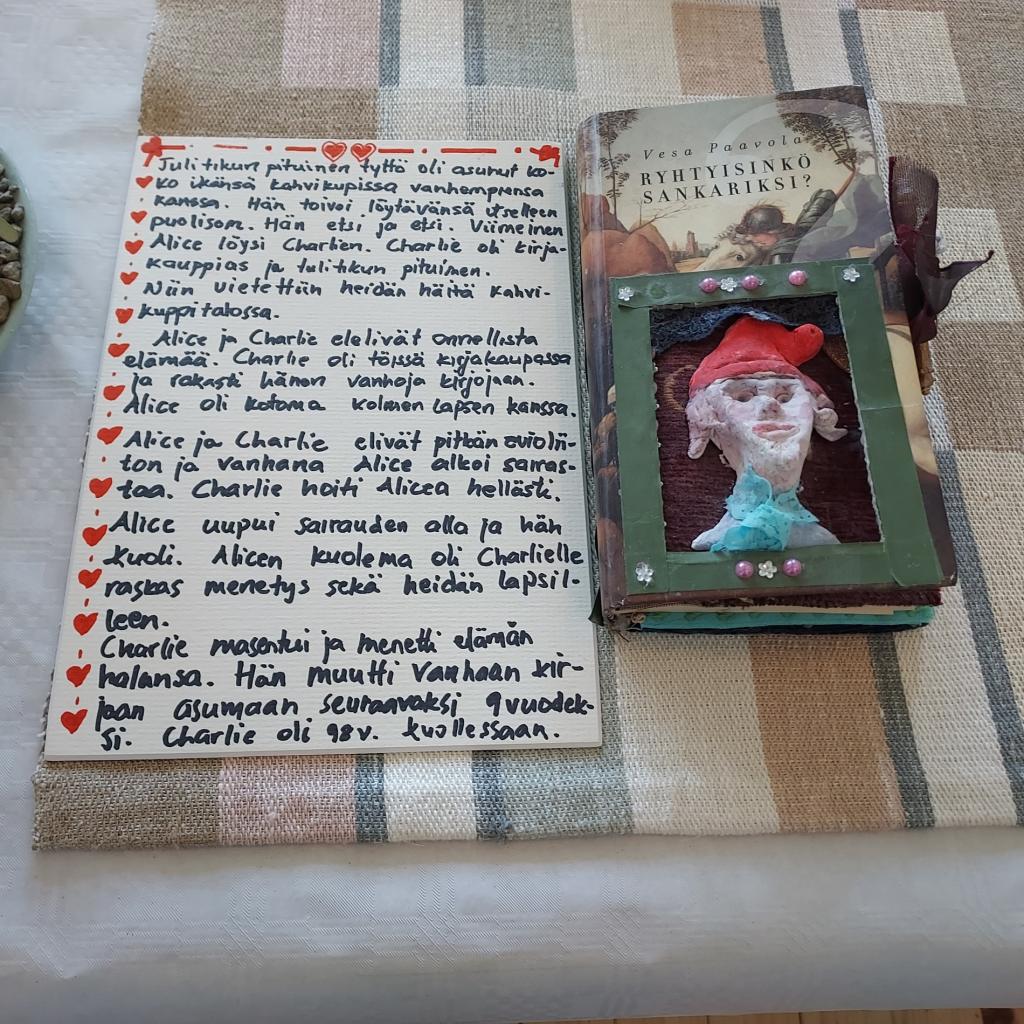 Tulitikun pituinen tyttö oli asunut ko-
ko ikänsä kahvikupissa vanhempiensa
kanssa. Hän toivoi löytävänsä itselleen
puolison. Hän etsi ja etsi. Viimeinen
Alice löysi Charlien. Charlie oli kirja-
kauppias ja tulitikun pituinen.
Näin vietettiin heidän häitä kahvi-
kuppitalossa.
Alice ja Charlie elelivät onnellista
elämää. Charlie oli töissä kirjakaupassa
ja rakasti hänen vanhoja kirjojaan.
Alice oli kotona kolmen lapsen kanssa.
Alice ja Charlie elivät pitkän aviolii-
ton ja vanhana Alice alkoi sairas-
taa. Charlie hoiti Alicea hellästi.
Alice uupui sairauden alla ja hän
kuoli. Alicen kuolema oli Charlielle
raskas menetys sekä heidän lapsil-
leen.
Charlie masentui ja menetti elämän
halunsa. Hän muutti vanhaan kir-
jaan asumaan seuraavaksi 9 vuodek-
si. Charlie oli 98 v. kuollessaan.
Vesa Paavola
RYHTYISINKÖ
SANKARIKSI?